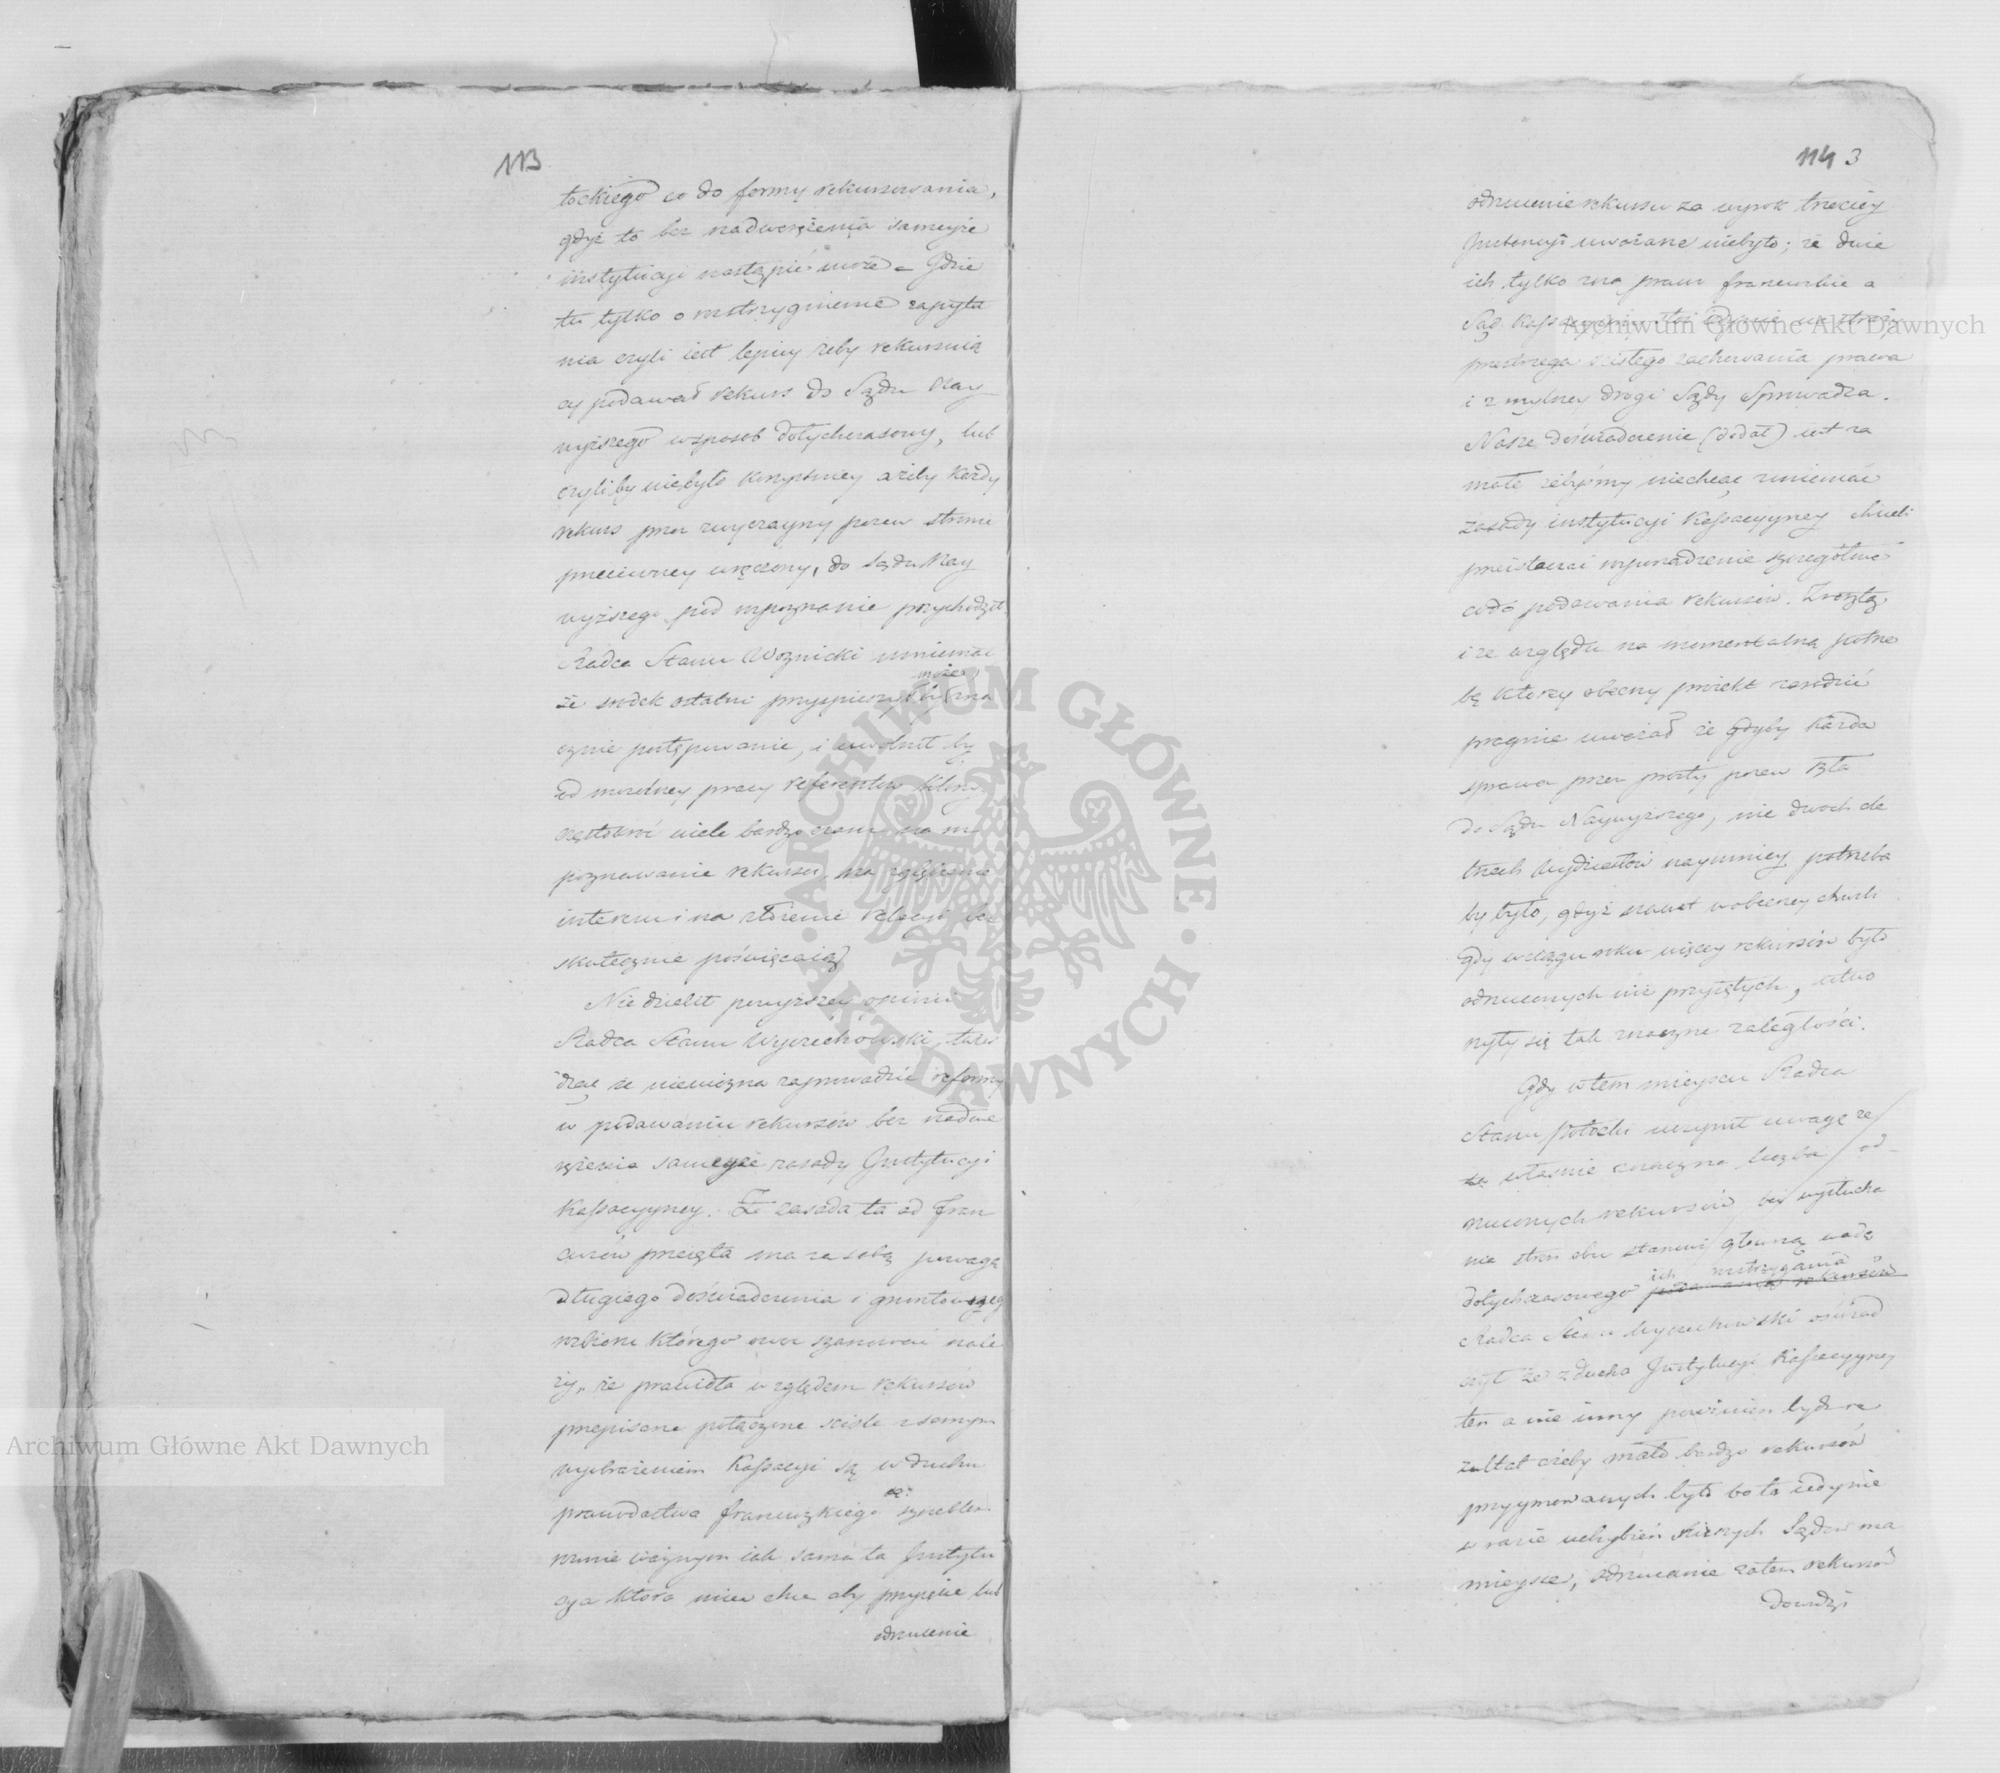 113
tockiego co do formy rekursowania,
gdyż to bez nadwerężenia sameyże
instytucyi nastąpić może – Gdzie
tu tylko o rozstrzygnienie zapyta
nia czyli iest lepiey żeby rekursuią
cy podawał rekurs do Sądu Nay
wyższego wsposób dotychczasowy, lub
czyliby niebyło korzystniey ażeby każdy
rekurs przez zwyczayny pozew stronie
przeciwney wręczony, do Sądu Nay
wyższego pod rozpoznanie przychodził.
Radca Stanu Woźnicki mniemał
że srodek ostatni przyspieszyłby zna
może
cznie postępowanie, i uwolnił by
od mozolney pracy referentów którzy
częstokroć wiele bardzo czasu na ro
zpoznawanie rekursu, na zgłębienie
interessu i na złożenie relacyi bez
skutecznie poświęcaią
Nie dzielił powyższey opinii
Radca Stanu Wyczechowski, twier
dząc że niemożna zaprowadzić reformy
w podawaniu rekursów bez nadwe
rężenia sameyże zasady Instytucyi
Kassacyyney. Że zasada ta od Fran
cuzów przeięta ma za sobą powagę
długiego doświadczenia i gruntownego
rozbioru którego owoc szanować nale
ży, że prawidła względem rekursów
przepisane połączone ściśle z samym
wyobrażeniem Kassacyi są w duchu
prawodawstwa francuzkiego szczeblem
równie ważnym iak sama ta Instytu
cya która mieć chce aby przyięcie lub
odrzucenie
114 3
odrzucenie rekursu za wyrok trzeciey
Instancyi uważane niebyło; że dwie
ich tylko zna prawo francuzkie a
Sąd Kassacyyny stoi iedynie na straży
przestrzega ścisłego zachowania prawa
i z mylney drogi Sądy Sprowadza.
Nasze doświadczenie (dodał) iest za
małe żebyśmy niechcąc zmieniać
zasady instytucyi Kassacyyney chcieli
przeistaczać rozporządzenie szczególne
codo podawania rekursów. Zresztą
i ze względu na momentalną potrze
bę którey obecny proiekt zaradzić
pragnie uważał że gdyby każda
sprawa przez prosty pozew szła
do Sądu Naywyższego, nie dwoch ale
trzech Wydziałów naymniey potrzeba
by było, gdyż nawet wobecney chwili
gdy wciągu roku więcey rekursów było
odrzuconych niż przyiętych, utwo
rzyły się tak znaczne zaległości.
Gdy wtem mieyscu Radca
Stanu Potocki uczynił uwagę że
ta właśnie znaczna liczba od
rzuconych rekursów bez wysłucha
nia stron obu stanowi główną wadę
dotychczasowego ich roztrzygania
podawania rekursów
Radca Stanu Wyczechowski oświad
czył że z ducha Instytucyi Kassacyyney
ten a nie inny powinien bydź re
zultat ażeby mało bardzo rekursów
przyymowanych było bo to iedynie
w razie uchybień niższych Sądów ma
mieysce, odrzucanie zatem rekursów
dowodzi